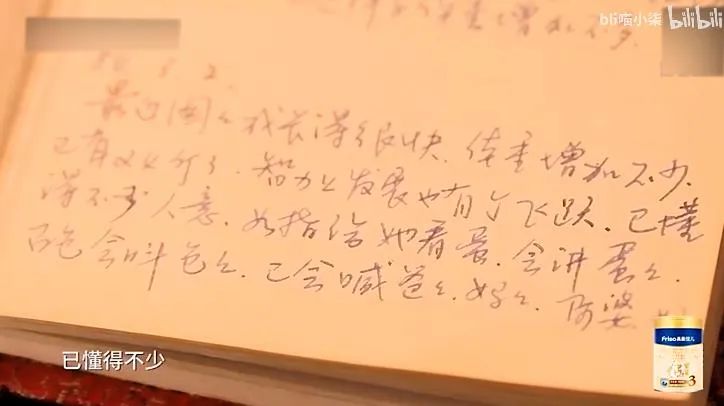 bli喵小柒 bilibili
增加不少
8.2.
最近囡々长得很快，体重增加不少，
已有 斤了，智力上发展也有个飞跃，已懂
得不少人意，如指给她看蛋，会讲蛋々，
会叫包々，已会喊爸々，妈々，阿婆
已懂得不少
Friso美素佳儿
3